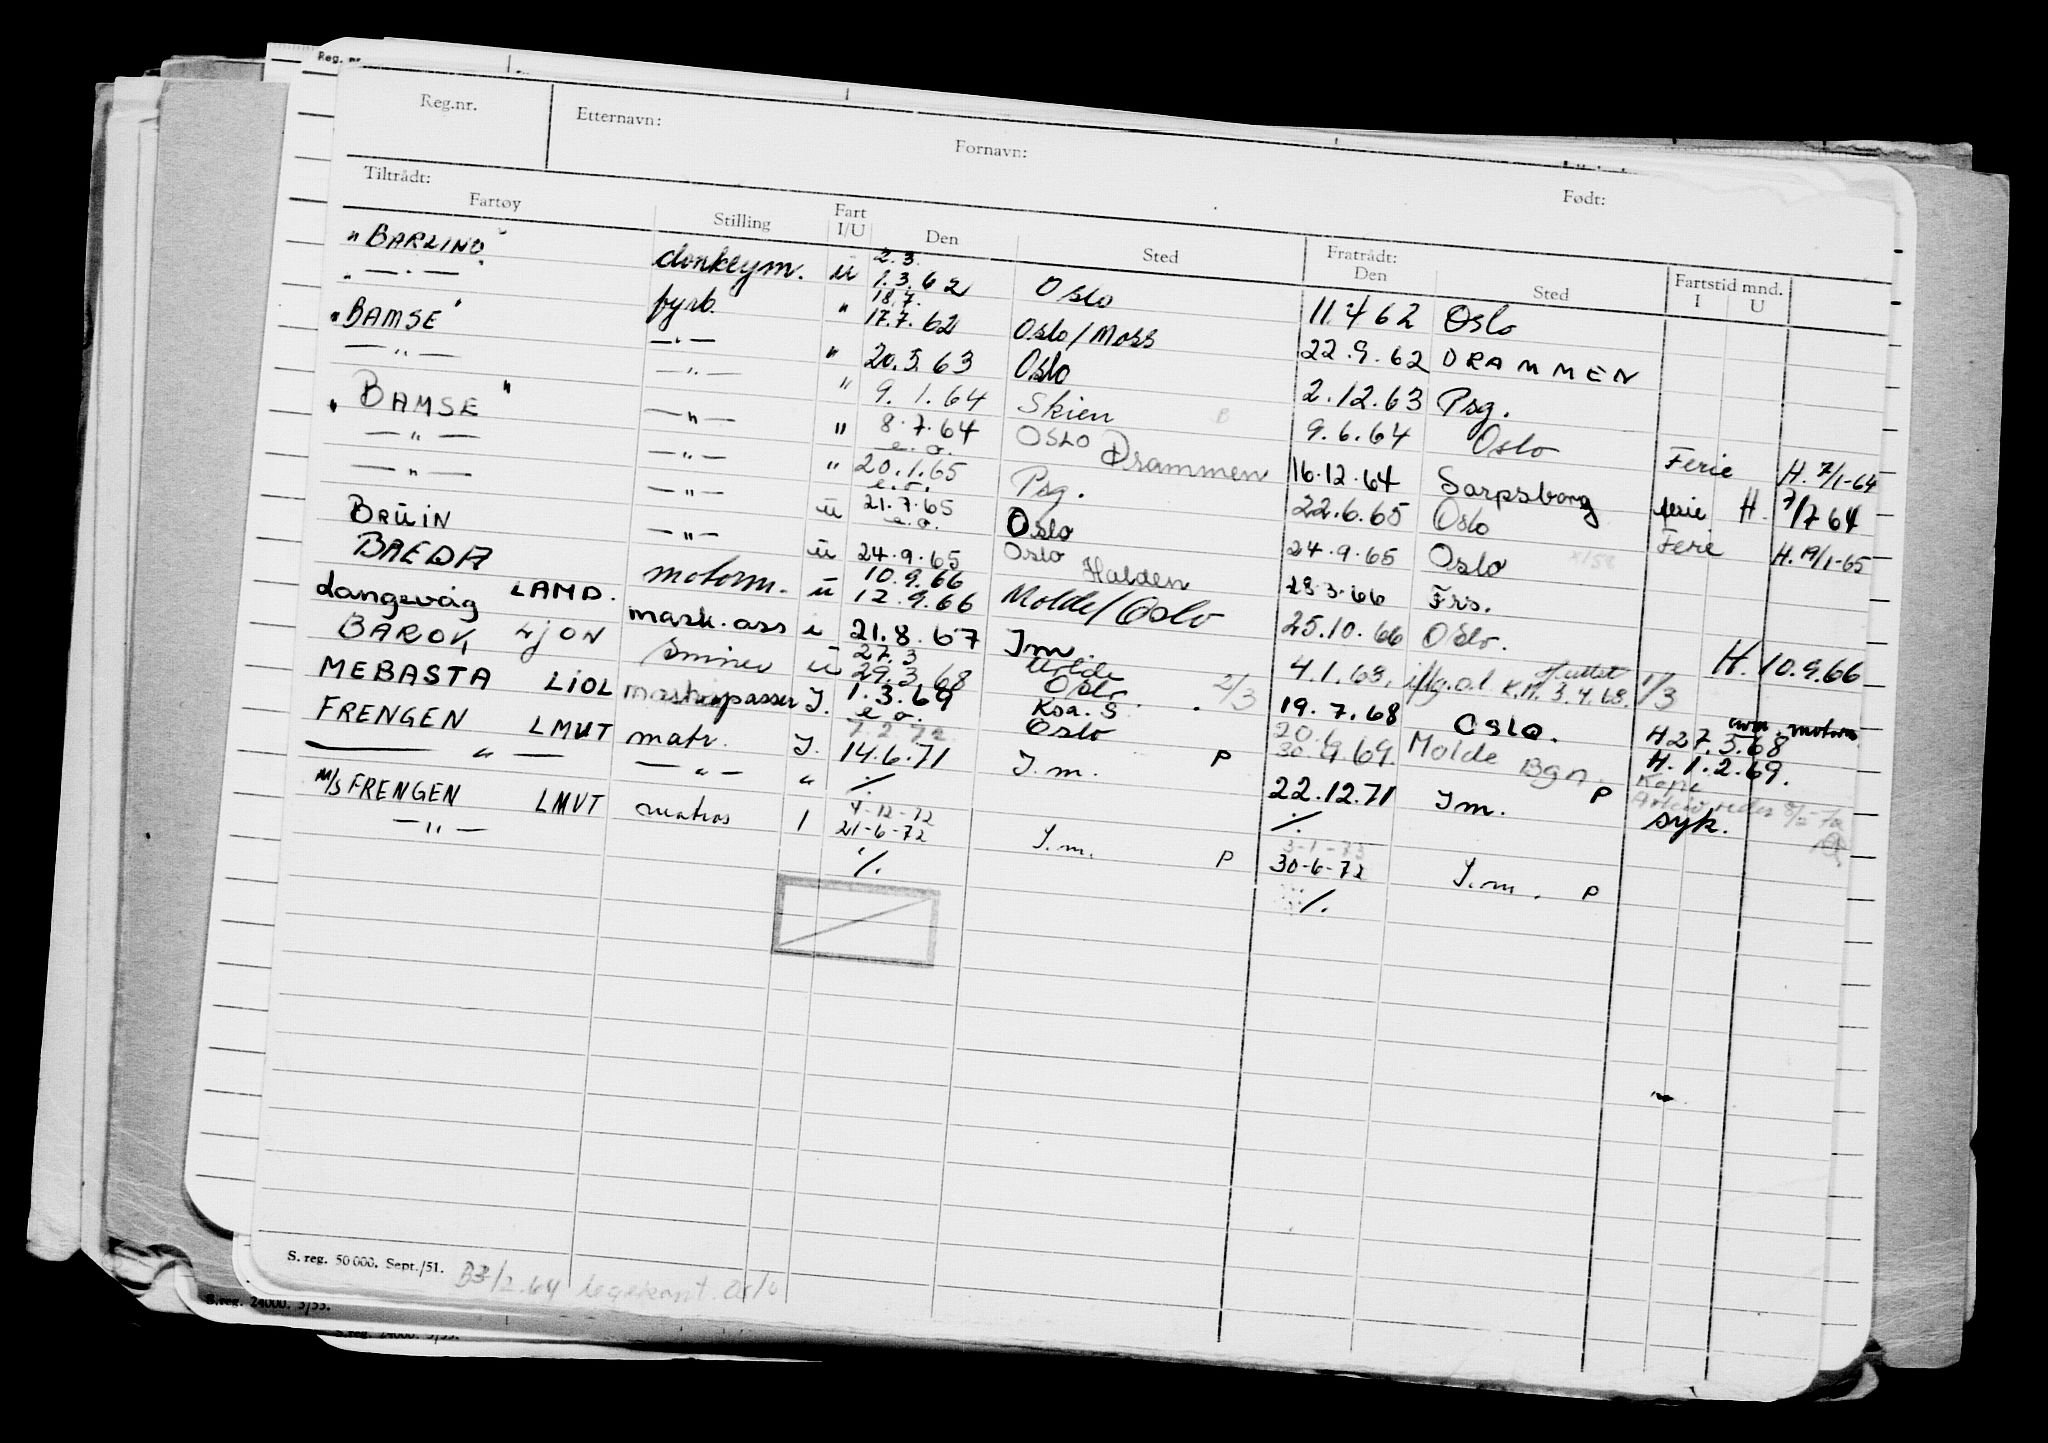 Reg. nr.
Reg.nr. Etternavn: Fornavn: Født:
Tiltrådt: Fratrådt:
Fartøy Stilling Fart I/U Den Sted Den Sted Fartstid mnd. I U
"BARLIND" donkeym. ü 2.3. 1.3.62 Oslo 11.4.62 Oslo
" — " — " fyrb. " 18.7. 17.7.62 Oslo/Moss 22.9.62 DRAMMEN
"BAMSE" — " — " 20.5.63 Oslo 2.12.63 Psg.
— " — — " — " 9.1.64 Skien 9.6.64 Oslo Ferie H. 7/1-64
" BAMSE " — " — " 8.7.64 e.o. OSLO Drammen 16.12.64 Sarpsborg ferie H. 7/7 64
— " — — " — " 20.1.65 e.o. Psg. 22.6.65 Oslo Ferie H. 19/1-65
— " — — " — ü 21.7.65 e.o. Oslo 24.9.65 Oslo
BRÜIN — " — ü 24.9.65 Oslo Halden 23.3.66 Frs.
BREDA motorm. ü 10.9.66 12.9.66 Molde/Oslo 25.10.66 Oslo. H. 10.9.66
Langevåg LAMD. mask.ass i 21.8.67 Im. 4.1.68. iflg. o.l K.M. 3.4.68. 1/3
BAROK, LJON smører ü 27.3 29.3.68 Molde Oslo 2/3 19.7.68 OSLO. H 27.3.68 motorm.
MEBASTA LIOL maskinpasser I. 1.3.69 e.o. Ksa. S. 20.6. 30.9.69. Molde Bgn. H. 1.2.69.
FRENGEN LMUT matr. I. 7.2.72 14.6.71 Oslo I.m. P 22.12.71 I m. P syk.
Kopi 8/2-72
— " — — " — " ./. ./.
M/S FRENGEN LMVT matros I 4-12-72 21-6-72 I.m. P 3-1-73 30-6-72 I.m. P
— " — ./. ./.
S. reg. 50 000. Sept./51. B3/2.64 legekont. Oslo
S.reg. 24000. 3/53.
S.reg. 24000. 3/53.